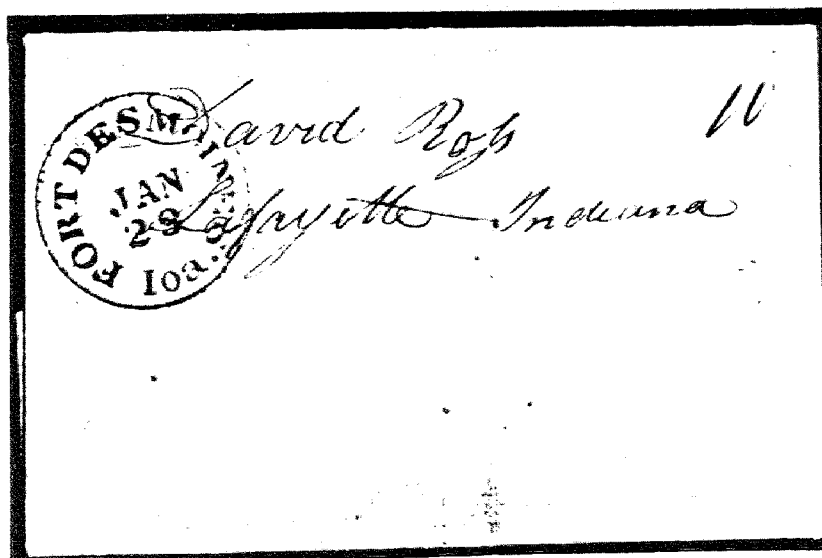 FORT DES MOINES. Ioa.
JAN
28
David Ross 10
Lafayette Indiana